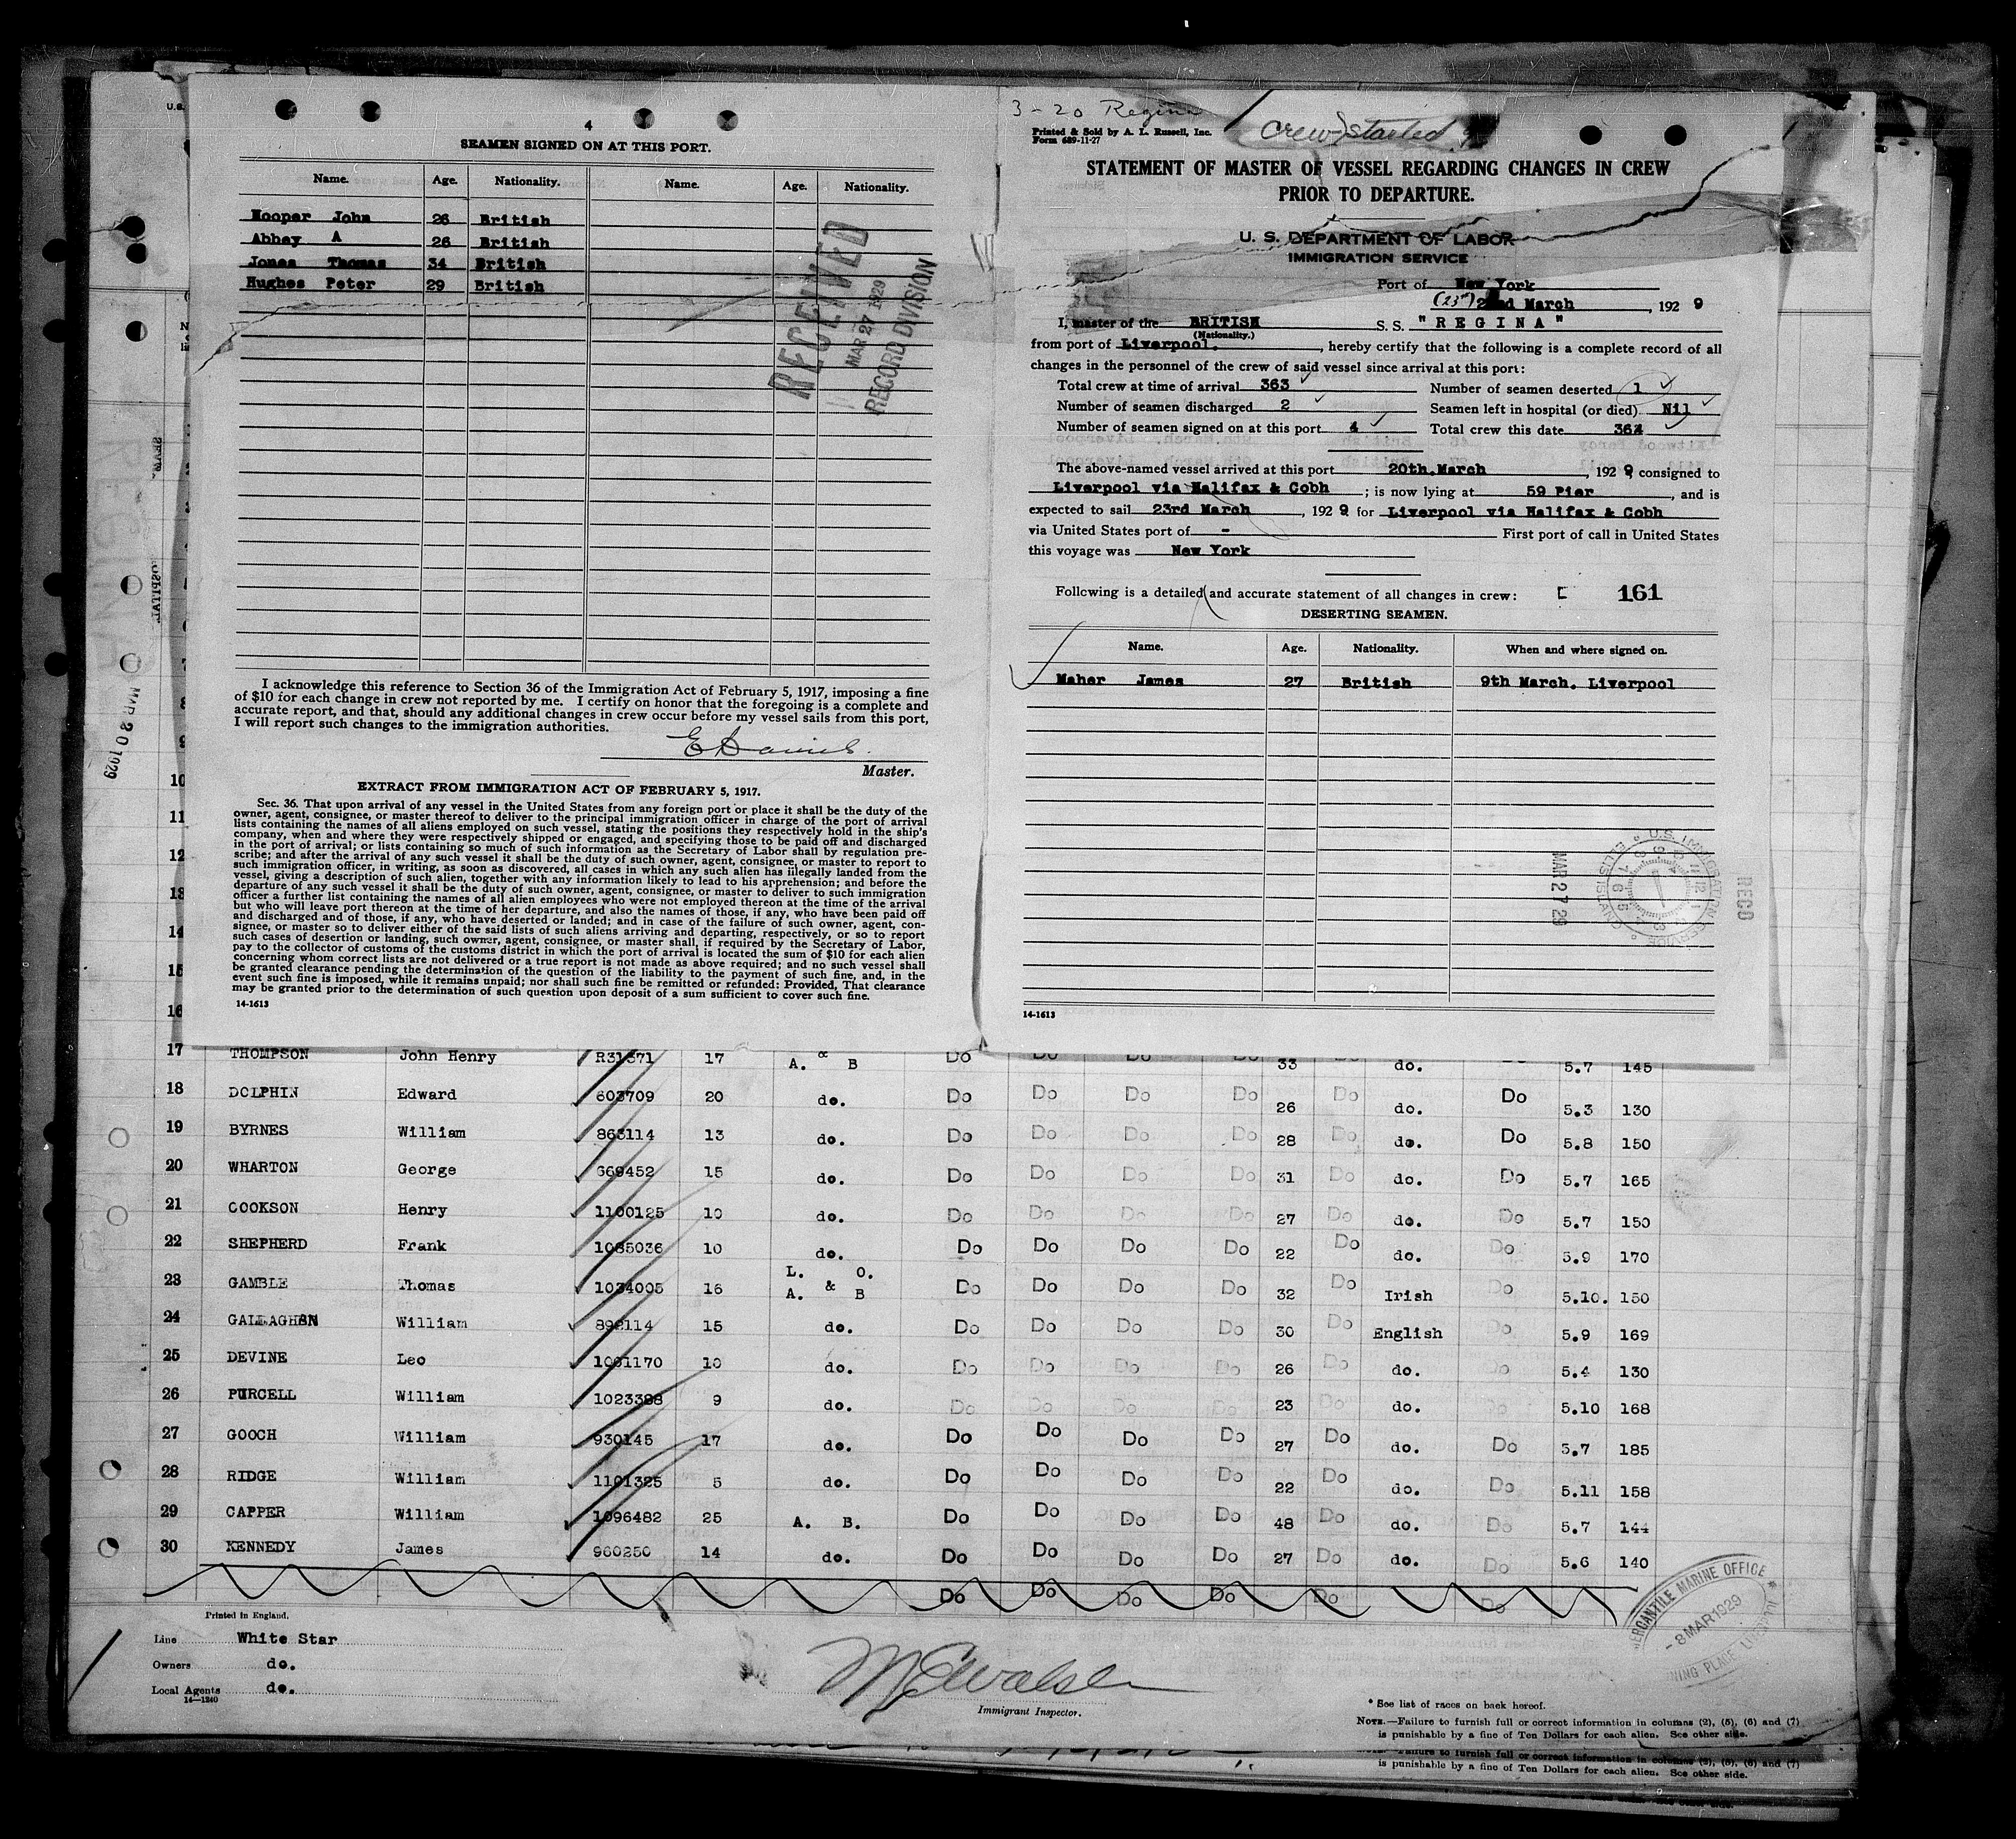 4
SEAMEN SIGNED ON AT THIS PORT.
Name. Age. Nationality. Name. Age. Nationality.
Hooper John 26 British
Abbey A 26 British
Jones Thomas 34 British
Hughes Peter 29 British
RECEIVED
MAR 27 1929
RECORD DIVISION
I acknowledge this reference to Section 36 of the Immigration Act of February 5, 1917, imposing a fine
of $10 for each change in crew not reported by me. I certify on honor that the foregoing is a complete and
accurate report, and that, should any additional changes in crew occur before my vessel sails from this port,
I will report such changes to the immigration authorities.
Master.
EXTRACT FROM IMMIGRATION ACT OF FEBRUARY 5, 1917.
Sec. 36. That upon arrival of any vessel in the United States from any foreign port or place it shall be the duty of the
owner, agent, consignee, or master thereof to deliver to the principal immigration officer in charge of the port of arrival
lists containing the names of all aliens employed on such vessel, stating the positions they respectively hold in the ship's
company, when and where they were respectively shipped or engaged, and specifying those to be paid off and discharged
in the port of arrival; or lists containing so much of such information as the Secretary of Labor shall by regulation pre-
scribe; and after the arrival of any such vessel it shall be the duty of such owner, agent, consignee, or master to report to
such immigration officer, in writing, as soon as discovered, all cases in which any such alien has illegally landed from the
vessel, giving a description of such alien, together with any information likely to lead to his apprehension; and before the
departure of any such vessel it shall be the duty of such owner, agent, consignee, or master to deliver to such immigration
officer a further list containing the names of all alien employees who were not employed thereon at the time of the arrival
but who will leave port thereon at the time of her departure, and also the names of those, if any, who have been paid off
and discharged and of those, if any, who have deserted or landed; and in case of the failure of such owner, agent, con-
signee, or master so to deliver either of the said lists of such aliens arriving and departing, respectively, or so to report
such cases of desertion or landing, such owner, agent, consignee, or master shall, if required by the Secretary of Labor,
pay to the collector of customs of the customs district in which the port of arrival is located the sum of $10 for each alien
concerning whom correct lists are not delivered or a true report is not made as above required; and no such vessel shall
be granted clearance pending the determination of the question of the liability to the payment of such fine, and, in the
event such fine is imposed, while it remains unpaid; nor shall such fine be remitted or refunded: Provided, That clearance
may be granted prior to the determination of such question upon deposit of a sum sufficient to cover such fine.
14-1613
3-20 Regina
Printed & Sold by A. L. Russell, Inc.
Form 689-11-27
Crew started
STATEMENT OF MASTER OF VESSEL REGARDING CHANGES IN CREW
PRIOR TO DEPARTURE.
U. S. DEPARTMENT OF LABOR
IMMIGRATION SERVICE
Port of New York
(23rd) 22nd March, 1929
I, master of the BRITISH S. S. "REGINA"
(Nationality.)
from port of Liverpool., hereby certify that the following is a complete record of all
changes in the personnel of the crew of said vessel since arrival at this port:
Total crew at time of arrival 363 Number of seamen deserted 1
Number of seamen discharged 2 Seamen left in hospital (or died) Nil
Number of seamen signed on at this port 4 Total crew this date 364
The above-named vessel arrived at this port 20th March, 1929 consigned to
Liverpool via Halifax & Cobh; is now lying at 59 Pier, and is
expected to sail 23rd March, 1929 for Liverpool via Halifax & Cobh
via United States port of - First port of call in United States
this voyage was New York
Following is a detailed and accurate statement of all changes in crew: 161
DESERTING SEAMEN.
Name. Age. Nationality. When and where signed on.
Maher James 27 British 9th March. Liverpool
U.S. IMMIGRATION SERVICE ELLIS ISLAND
MAR 27 29
RECD
14-1613
MAR 20 1929
10
11
12
13
14
15
16
17 THOMPSON John Henry R31371 17 A. & B Do Do Do Do 33 Do do. Do 5.7 145
18 DOLPHIN Edward 603709 20 do. Do Do Do Do 26 Do do. Do 5.3 130
19 BYRNES William 863114 13 do. Do Do Do Do 28 Do do. Do 5.8 150
20 WHARTON George 669452 15 do. Do Do Do Do 31 Do do. Do 5.7 165
21 COOKSON Henry 1100125 10 do. Do Do Do Do 27 Do do. Do 5.7 150
22 SHEPHERD Frank 1085036 10 do. Do Do Do Do 22 Do do. Do 5.9 170
23 GAMBLE Thomas 1034005 16 L. O. & A. B Do Do Do Do 32 Do Irish Do 5.10. 150
24 GALLAGHEN William 892114 15 do. Do Do Do Do 30 Do English Do 5.9 169
25 DEVINE Leo 1001170 10 do. Do Do Do Do 26 Do do. Do 5.4 130
26 PURCELL William 1023388 9 do. Do Do Do Do 23 Do do. Do 5.10 168
27 GOOCH William 930145 17 do. Do Do Do Do 27 Do do. Do 5.7 185
28 RIDGE William 1101325 5 do. Do Do Do Do 22 Do do. Do 5.11 158
29 CAPPER William 1096482 25 A. B. Do Do Do Do 48 Do do. Do 5.7 144
30 KENNEDY James 960250 14 do. Do Do Do Do 27 Do do. Do 5.6 140
Do Do Do Do Do Do
Printed in England.
Line White Star
Owners do.
Local Agents do.
14—1240
Immigrant Inspector.
MERCANTILE MARINE OFFICE
-8 MAR 1929
* See list of races on back hereof.
NOTE.—Failure to furnish full or correct information in columns (2), (5), (6) and (7)
is punishable by a fine of Ten Dollars for each alien. See other side.
Failure to furnish full or correct information in columns (2), (5), (6) and (7)
is punishable by a fine of Ten Dollars for each alien. See other side.